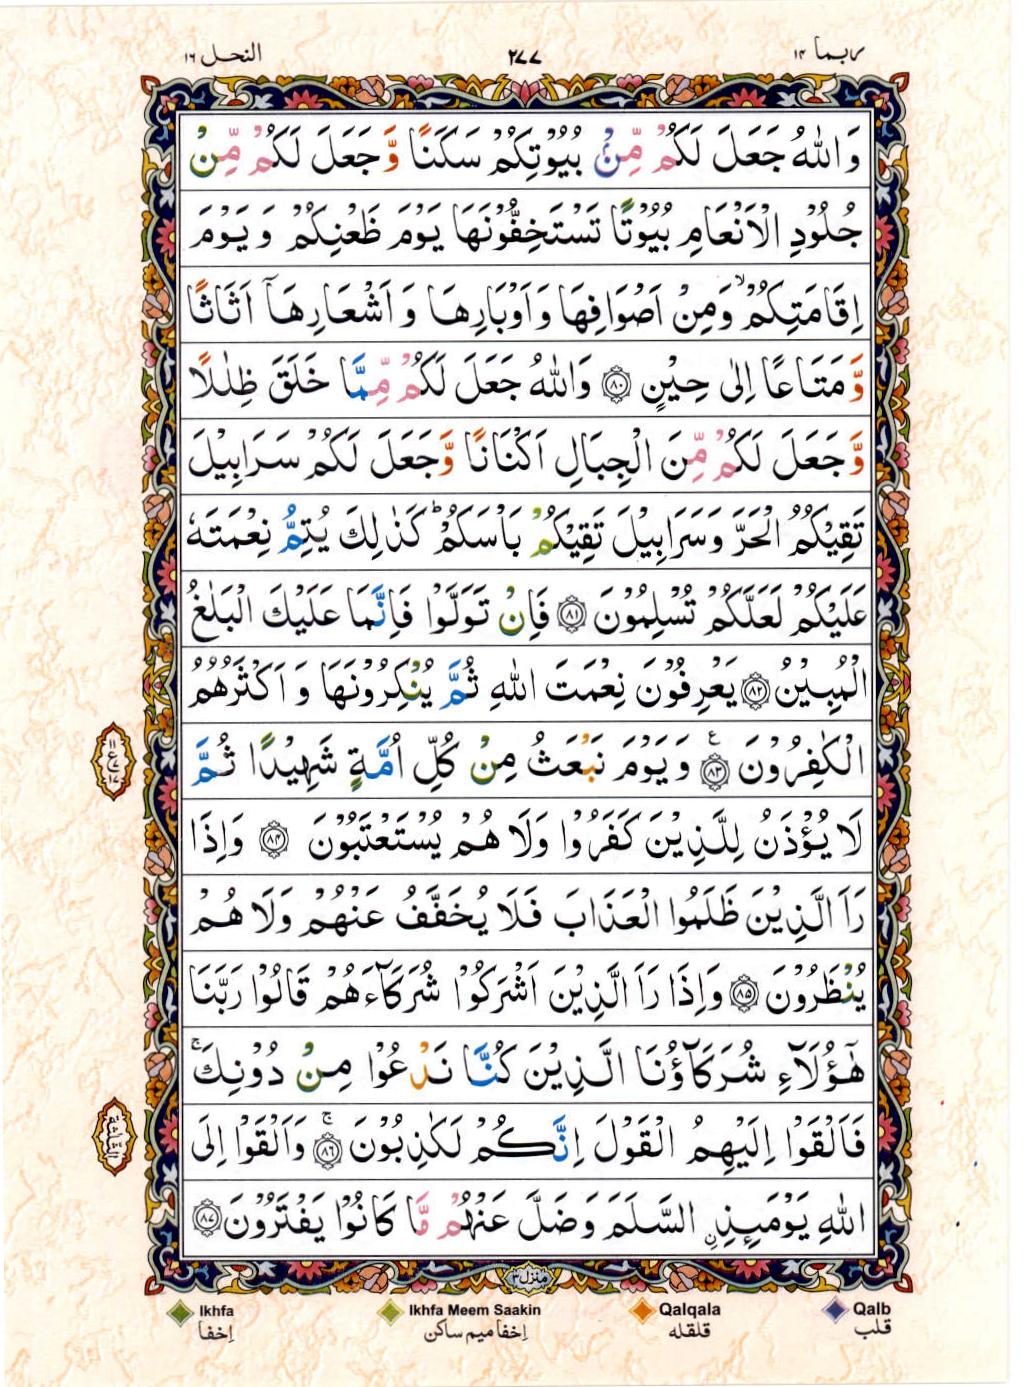 ربما ۱۴
۲۷۷
النحل ۱۶
وَاللّٰهُ جَعَلَ لَكُمْ مِّنْۢ بُيُوْتِكُمْ سَكَنًا وَّجَعَلَ لَكُمْ مِّنْ
جُلُوْدِ الْاَنْعَامِ بُيُوْتًا تَسْتَخِفُّوْنَهَا يَوْمَ ظَعْنِكُمْ وَيَوْمَ
اِقَامَتِكُمْ ۙ وَمِنْ اَصْوَافِهَا وَاَوْبَارِهَا وَاَشْعَارِهَآ اَثَاثًا
وَّمَتَاعًا اِلٰى حِيْنٍ ۝۸۰ وَاللّٰهُ جَعَلَ لَكُمْ مِّمَّا خَلَقَ ظِلٰلًا
وَّجَعَلَ لَكُمْ مِّنَ الْجِبَالِ اَكْنَانًا وَّجَعَلَ لَكُمْ سَرَابِيْلَ
تَقِيْكُمُ الْحَرَّ وَسَرَابِيْلَ تَقِيْكُمْ بَاْسَكُمْ ؕ كَذٰلِكَ يُتِمُّ نِعْمَتَهٗ
عَلَيْكُمْ لَعَلَّكُمْ تُسْلِمُوْنَ ۝۸۱ فَاِنْ تَوَلَّوْا فَاِنَّمَا عَلَيْكَ الْبَلٰغُ
الْمُبِيْنُ ۝۸۲ يَعْرِفُوْنَ نِعْمَتَ اللّٰهِ ثُمَّ يُنْكِرُوْنَهَا وَاَكْثَرُهُمُ
الْكٰفِرُوْنَ ۝۸۳ ۧ وَيَوْمَ نَبْعَثُ مِنْ كُلِّ اُمَّةٍ شَهِيْدًا ثُمَّ
لَا يُؤْذَنُ لِلَّذِيْنَ كَفَرُوْا وَلَا هُمْ يُسْتَعْتَبُوْنَ ۝۸۴ وَاِذَا
رَاَ الَّذِيْنَ ظَلَمُوا الْعَذَابَ فَلَا يُخَفَّفُ عَنْهُمْ وَلَا هُمْ
يُنْظَرُوْنَ ۝۸۵ وَاِذَا رَاَ الَّذِيْنَ اَشْرَكُوْا شُرَكَآءَهُمْ قَالُوْا رَبَّنَا
هٰٓؤُلَآءِ شُرَكَآؤُنَا الَّذِيْنَ كُنَّا نَدْعُوْا مِنْ دُوْنِكَ ۚ
فَاَلْقَوْا اِلَيْهِمُ الْقَوْلَ اِنَّكُمْ لَكٰذِبُوْنَ ۝۸۶ ۚ وَاَلْقَوْا اِلَى
اللّٰهِ يَوْمَىِٕذِ ِۨالسَّلَمَ وَضَلَّ عَنْهُمْ مَّا كَانُوْا يَفْتَرُوْنَ ۝۸۷
الثلثة
منزل ۳
Ikhfa
إخفا
Ikhfa Meem Saakin
إخفا ميم ساكن
Qalqala
قلقله
Qalb
قلب